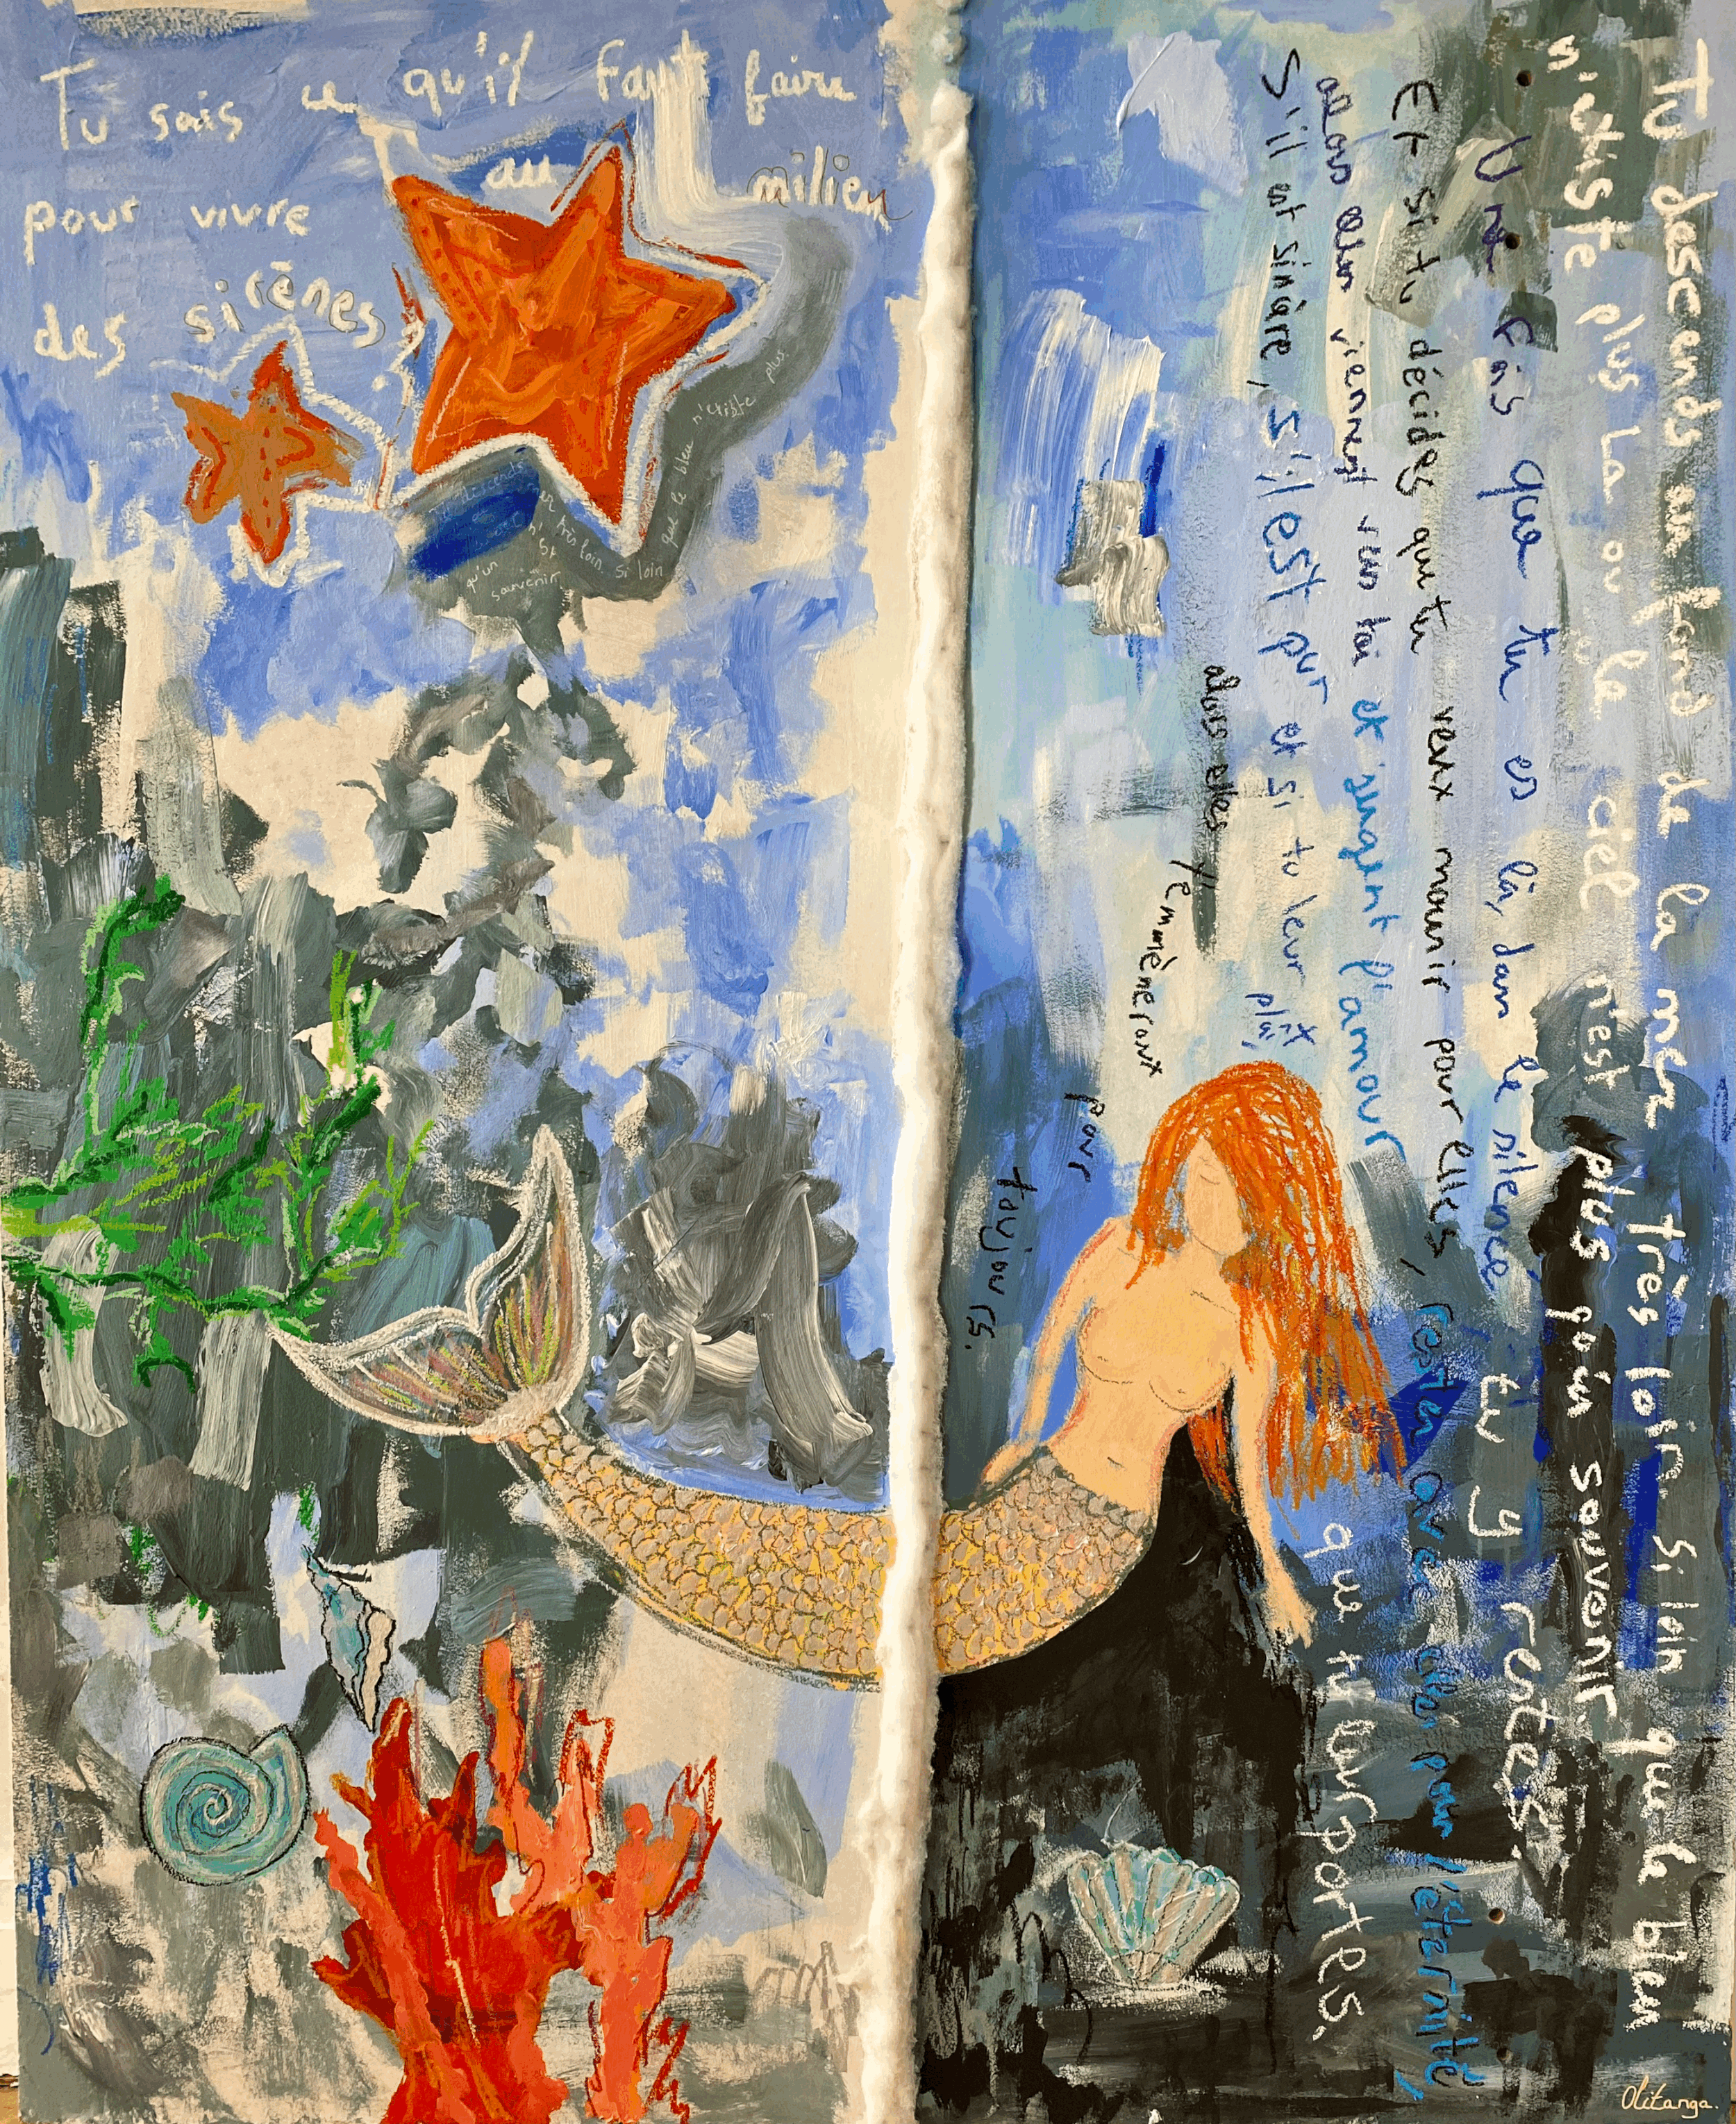 Tu sais ce qu'il faut faire
pour vivre au milieu
des sirènes ?
Tu descends au fond de la mer très loin si loin que le bleu
n'existe plus Là où le ciel n'est plus qu'un souvenir
Une fois que tu es là, dans le silence tu y restes.
Et si tu décides que tu veux mourir pour elles, rester avec elles pour l'éternité,
alors elles viennent vers toi et jugent l'amour que tu leur portes.
S'il est sincère, s'il est pur et si tu leur plaix
alors elles
t'emmèneront
pour
toujours.
très loin si loin
que le bleu n'existe plus.
qu'un
souvenir
Olitanga.